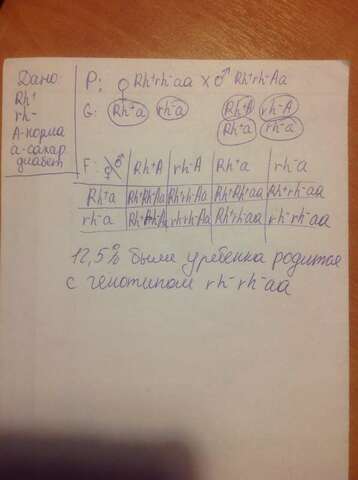 Дано
Rh⁺
rh⁻
A-норма
a-сахар
диабет
P: ♀ Rh⁺rh⁻aa x ♂ Rh⁺rh⁻Aa
G: Rh⁺a rh⁻a Rh⁺A rh⁻A
Rh⁺a rh⁻a
F: ♀ ♂ Rh⁺A rh⁻A Rh⁺a rh⁻a
Rh⁺a Rh⁺Rh⁺Aa Rh⁺rh⁻Aa Rh⁺Rh⁺aa Rh⁺rh⁻aa
rh⁻a Rh⁺rh⁻Aa rh⁻rh⁻Aa Rh⁺rh⁻aa rh⁻rh⁻aa
12,5% было у ребенка родится
с генотипом rh⁻rh⁻aa